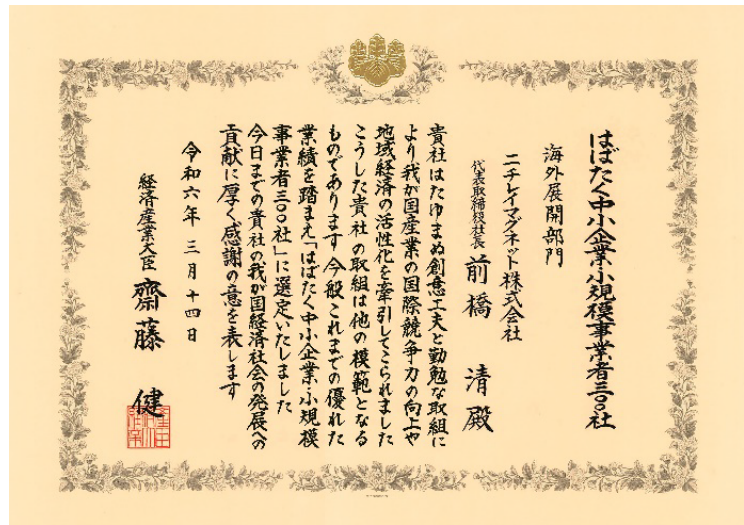 はばたく中小企業・小規模事業者三〇〇社
海外展開部門
ニチレイマグネット株式会社
代表取締役社長 前橋 清 殿
貴社はたゆまぬ創意工夫と勤勉な取組に
より我が国産業の国際競争力の向上や
地域経済の活性化を牽引してこられました
こうした貴社の取組は他の模範となる
ものであります 今般これまでの優れた
業績を踏まえ「はばたく中小企業・小規模
事業者三〇〇社」に選定いたしました
今日までの貴社の我が国経済社会の発展への
貢献に厚く感謝の意を表します
令和六年三月十四日
経済産業大臣 齋藤 健